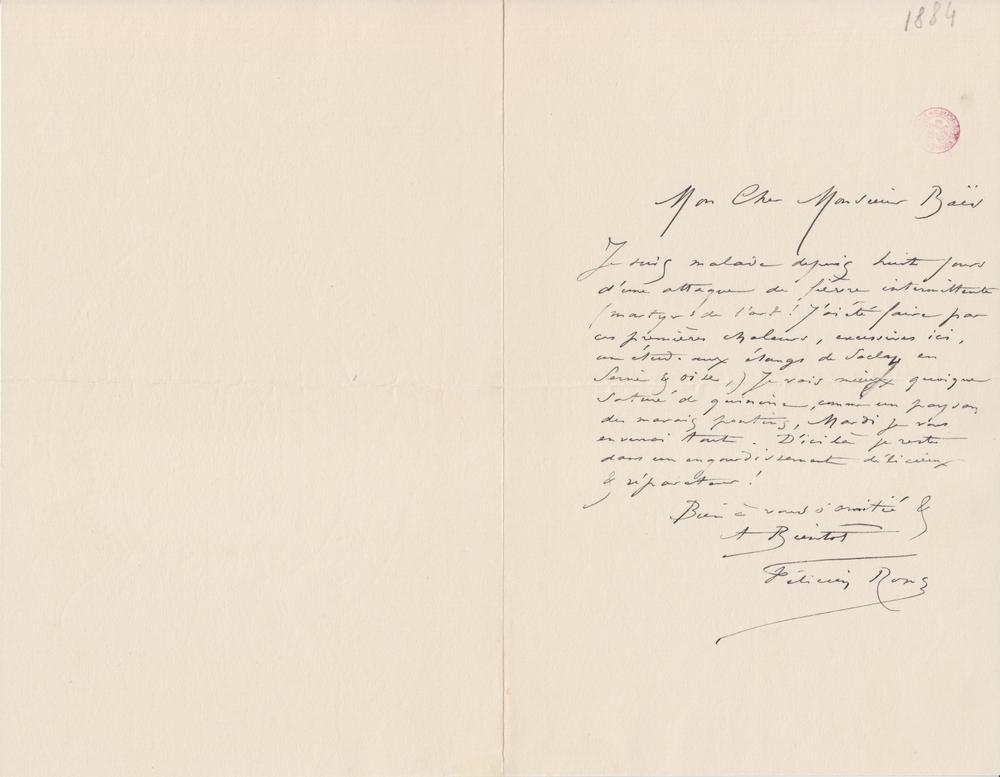 1884
Mon Cher Monsieur Baës
Je suis malade depuis huit jours
d'une attaque de fièvre intermittente
(martyr de l'art ! J'ai été faire par
ces premières chaleurs, excessives ici,
une étude aux étangs de Saclay en
Seine & oise,) Je vais mieux quoique
saturé de quinine, comme un paysan
des marais pontins, Mardi je vous
enverrai tout. D'ici là je reste
dans un engourdissement délicieux
& réparateur !
Bien à vous d'amitié &
A Bientot
Félicien Rops